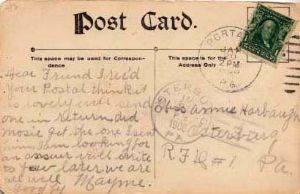 Post Card.
This space may be used for Correspondence
This space is for the Address Only.
Dear Friend Rec'd
Your Postal think it
is lovely will send
one in Return did
mosie get the one I sent
him I am looking for
an answer will write
to you later we are
all well
Good by
Mayme.
Annie Harbaugh
Osterburg
R.F.D. #1
Pa.
JAN
2 PM